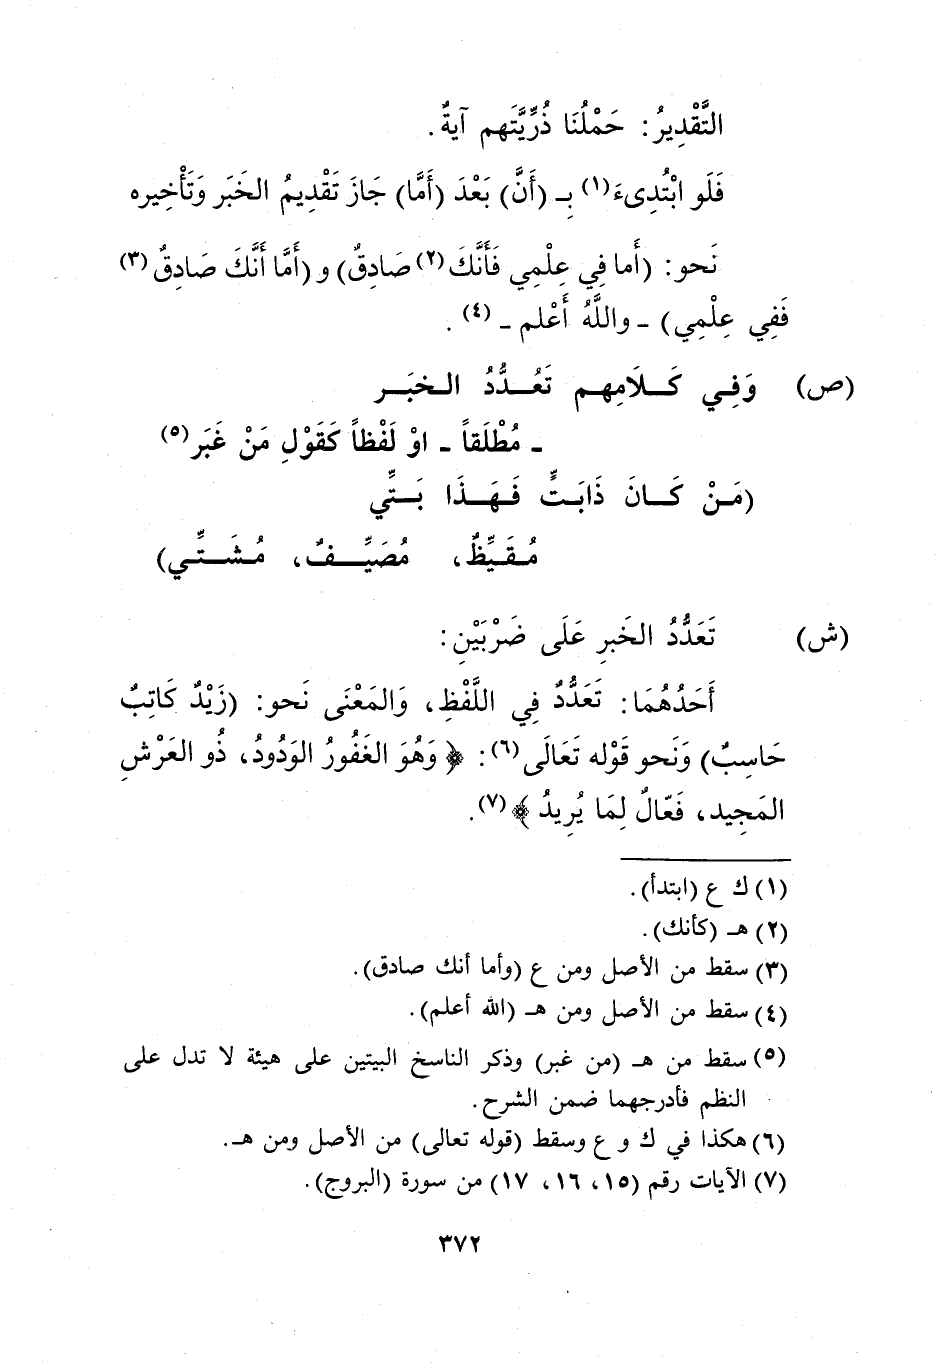 التَّقْدِيرُ: حَمْلُنَا ذُرِّيَّتَهم آيةٌ.
فَلَو ابْتُدِىءَ(١) بـِ (أَنَّ) بَعْدَ (أَمَّا) جَازَ تَقْدِيمُ الخَبَر وَتَأْخِيره
نَحو: (أَما فِي عِلْمِي فَأَنَّكَ(٢) صَادِقٌ) و (أَمَّا أَنَّكَ صَادِقٌ(٣)
فَفِي عِلْمِي) ـ واللَّهُ أَعْلم ـ (٤).
(ص) وَفِي كَلَامِهم تَعُدُّدُ الخبَر
ـ مُطْلَقاً ـ اوْ لَفْظاً كَقَوْلِ مَنْ غَبَر(٥)
(مَنْ كَانَ ذَابَتٍّ فَهَذَا بَتِّي
مُقَيِّظٌ، مُصَيِّفٌ، مُشَتِّي)
(ش) تَعَدُّدُ الخَبرِ عَلَى ضَرْبَيْنِ:
أَحَدُهُمَا: تَعَدُّدٌ فِي اللَّفْظِ، وَالمَعْنَى نَحو: (زَيْدٌ كَاتِبٌ
حَاسِبٌ) وَنَحو قَوْله تَعَالَى(٦): ﴿ وَهُوَ الغَفُورُ الوَدُودُ، ذُو العَرْشِ
المَجِيد، فَعّالٌ لِمَا يُرِيدُ ﴾(٧).
(١) ك ع (ابتدأ).
(٢) هـ (كأنك).
(٣) سقط من الأصل ومن ع (وأما أنك صادق).
(٤) سقط من الأصل ومن هـ (الله أعلم).
(٥) سقط من هـ (من غبر) وذكر الناسخ البيتين على هيئة لا تدل على
النظم فأدرجهما ضمن الشرح.
(٦) هكذا في ك و ع وسقط (قوله تعالى) من الأصل ومن هـ.
(٧) الآيات رقم (١٥، ١٦، ١٧) من سورة (البروج).
٣٧٢